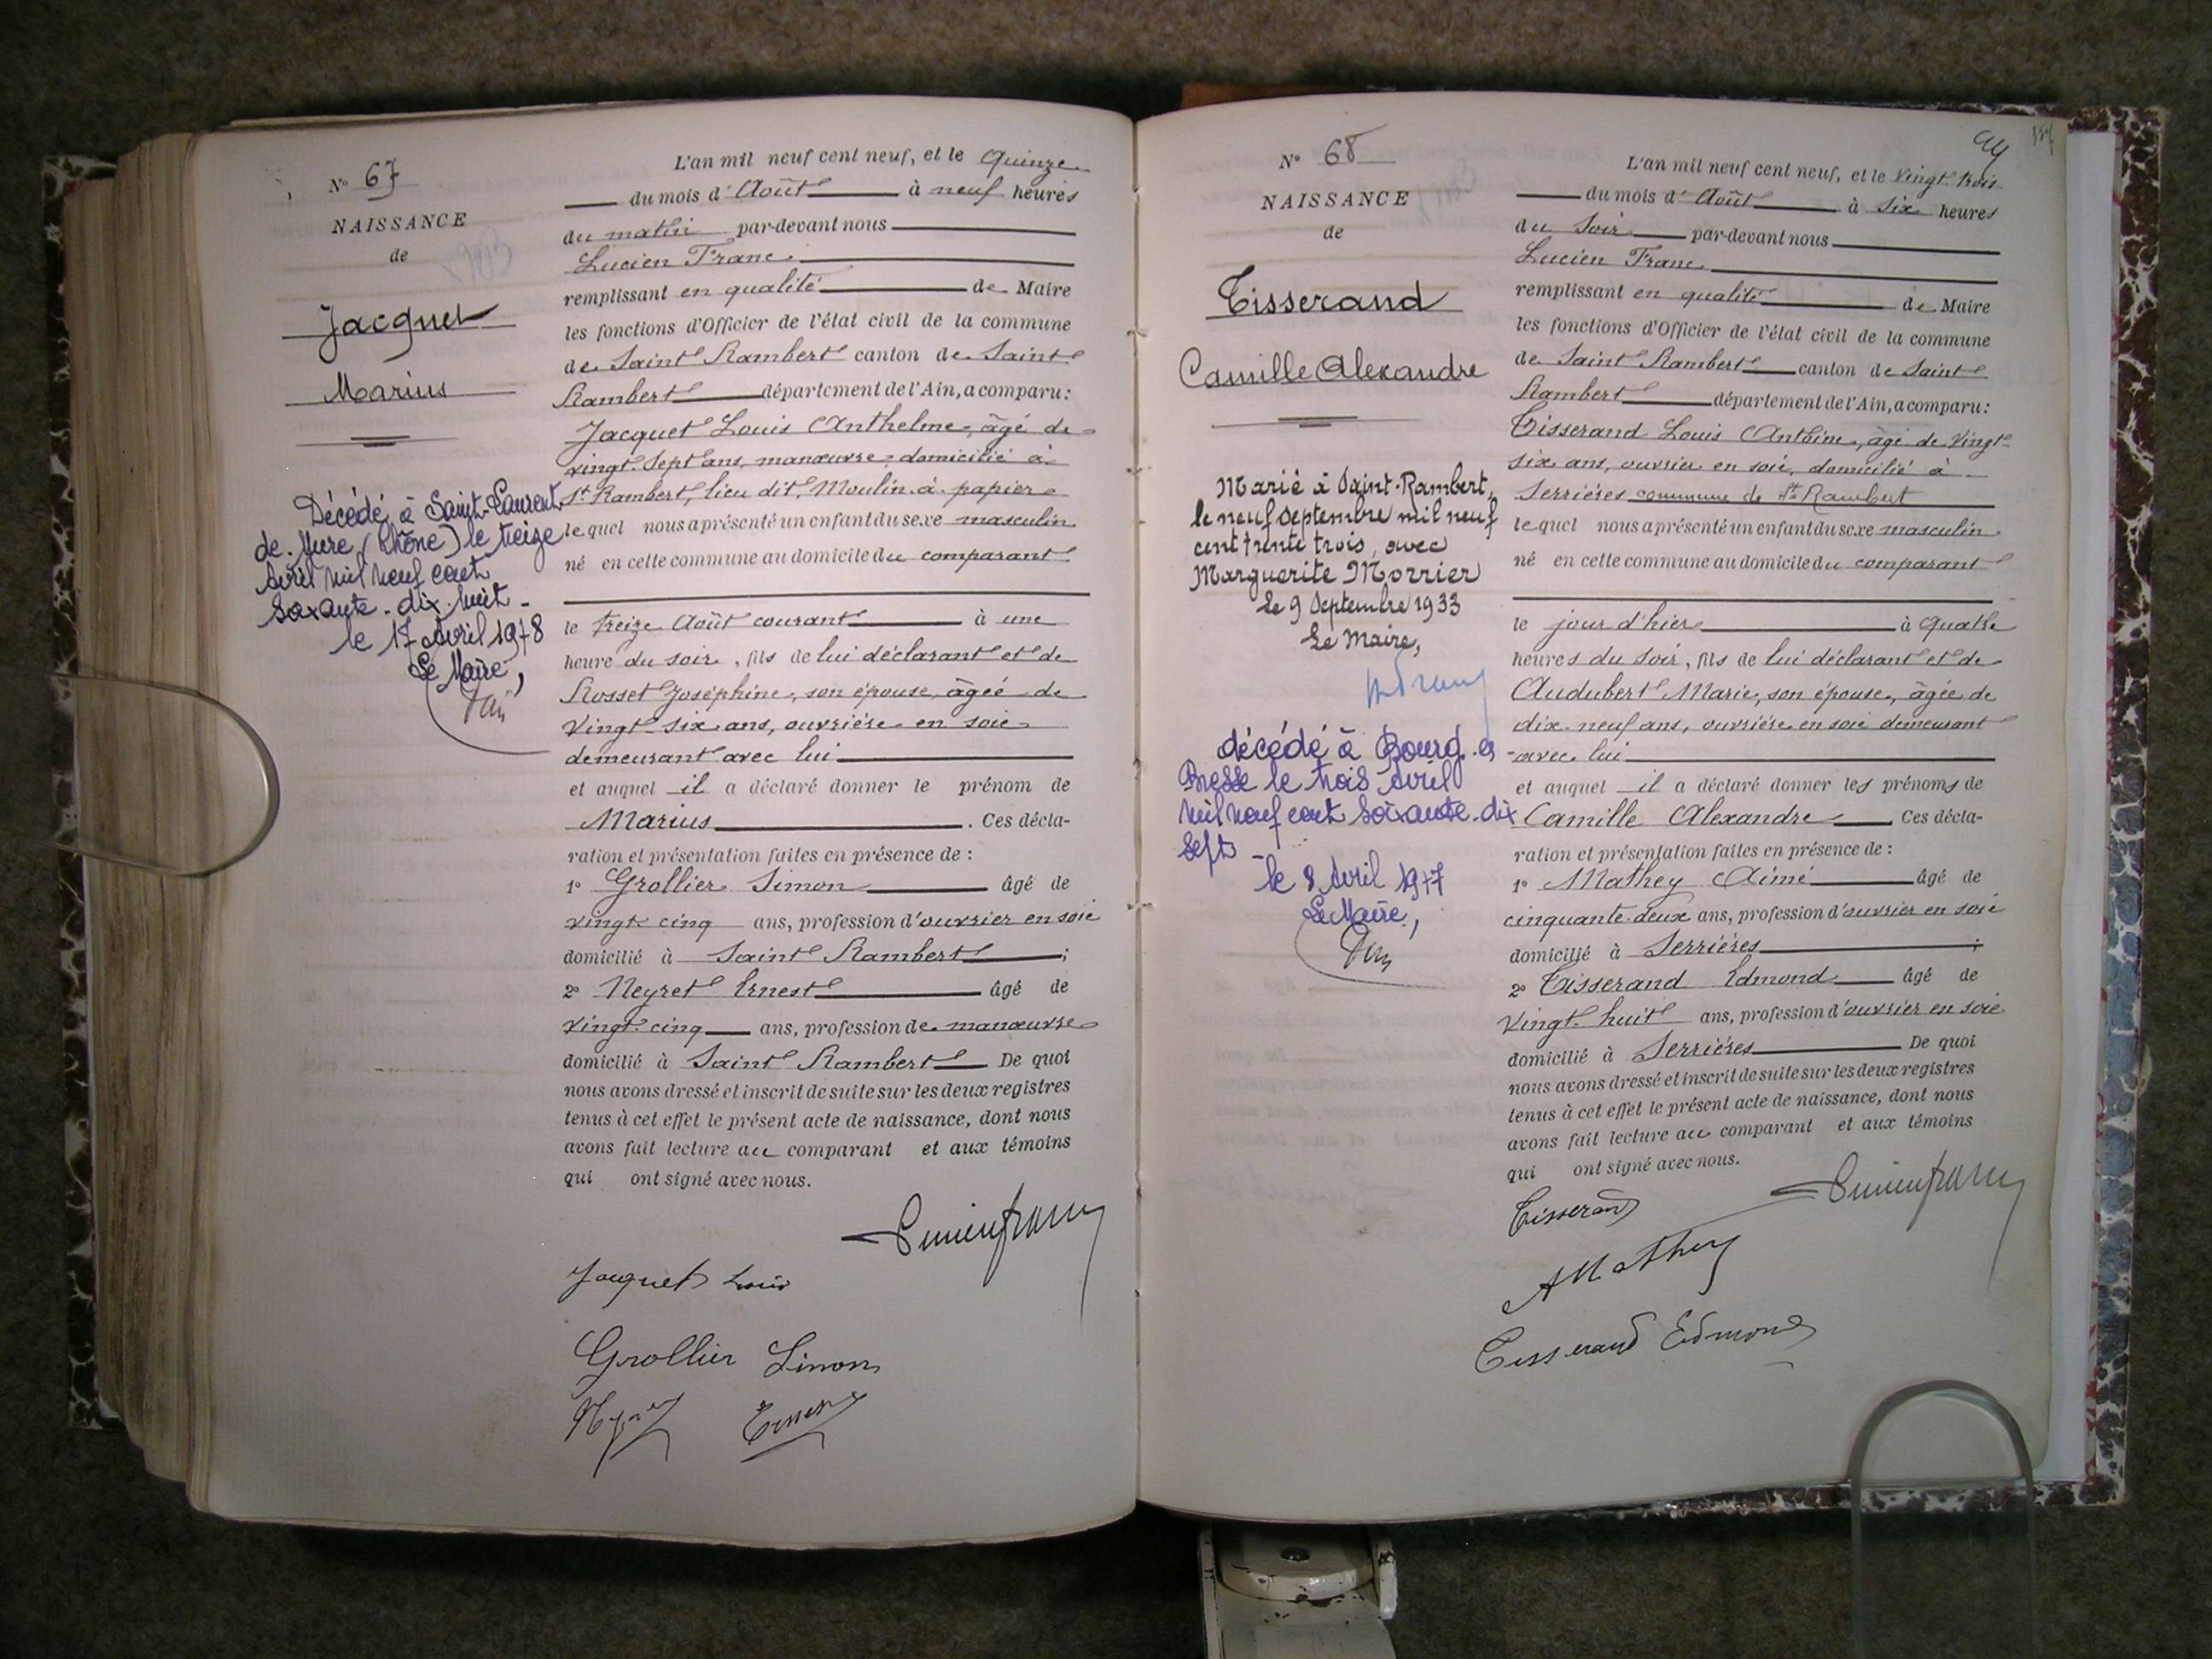 N° 67
NAISSANCE
de
Jacquet
Marius
Décédé à Saint-Laurent
de-Mure (Rhône) le treize
Avril mil neuf cent
soixante-dix-huit -
le 17 Avril 1978
Le Maire,
L'an mil neuf cent neuf, et le Quinze
du mois d'Août à neuf heures
du matin par-devant nous
Lucien Franc
remplissant en qualité de Maire
les fonctions d'Officier de l'état civil de la commune
de Saint Rambert canton de Saint
Rambert département de l'Ain, a comparu:
Jacquet Louis Anthelme, âgé de
vingt-sept ans, manœuvre domicilié à
St Rambert, lieu dit, Moulin à papier
lequel nous a présenté un enfant du sexe masculin
né en cette commune au domicile du comparant
le treize Août courant à une
heure du soir, fils de lui déclarant et de
Rosset Joséphine, son épouse, âgée de
vingt-six ans, ouvrière en soie
demeurant avec lui
et auquel il a déclaré donner le prénom de
Marius. Ces décla-
ration et présentation faites en présence de :
1° Grollier Simon âgé de
vingt cinq ans, profession d'ouvrier en soie
domicilié à Saint Rambert ;
2° Neyret Ernest âgé de
vingt-cinq ans, profession de manœuvre
domicilié à Saint Rambert De quoi
nous avons dressé et inscrit de suite sur les deux registres
tenus à cet effet le présent acte de naissance, dont nous
avons fait lecture au comparant et aux témoins
qui ont signé avec nous.
Lucien Franc
Jacquet Louis
Grollier Simon
Neyret Ernest
N° 68
NAISSANCE
de
Tisserand
Camille Alexandre
Marié à Saint-Rambert,
le neuf Septembre mil neuf
cent trente trois, avec
Marguerite Morrier
Le 9 Septembre 1933
Le Maire,
décédé à Bourg-en
Bresse le trois Avril
mil neuf cent soixante-dix
sept -
le 8 Avril 1977
Le Maire,
L'an mil neuf cent neuf, et le vingt-trois
du mois d'Août à six heures
du soir par-devant nous
Lucien Franc
remplissant en qualité de Maire
les fonctions d'Officier de l'état civil de la commune
de Saint Rambert canton de Saint
Rambert département de l'Ain, a comparu:
Tisserand Louis Antoine, âgé de vingt-
six ans, ouvrier en soie, domicilié à
Serrières commune de St Rambert
lequel nous a présenté un enfant du sexe masculin
né en cette commune au domicile du comparant
le jour d'hier à quatre
heures du soir, fils de lui déclarant et de
Audubert Marie, son épouse, âgée de
dix-neuf ans, ouvrière en soie demeurant
avec lui
et auquel il a déclaré donner les prénoms de
Camille Alexandre Ces décla-
ration et présentation faites en présence de :
1° Mathey Aimé âgé de
cinquante-deux ans, profession d'ouvrier en soie
domicilié à Serrières ;
2° Tisserand Edmond âgé de
vingt-huit ans, profession d'ouvrier en soie
domicilié à Serrières De quoi
nous avons dressé et inscrit de suite sur les deux registres
tenus à cet effet le présent acte de naissance, dont nous
avons fait lecture au comparant et aux témoins
qui ont signé avec nous.
Tisserand Lucien Franc
A Mathey
Tisserand Edmond